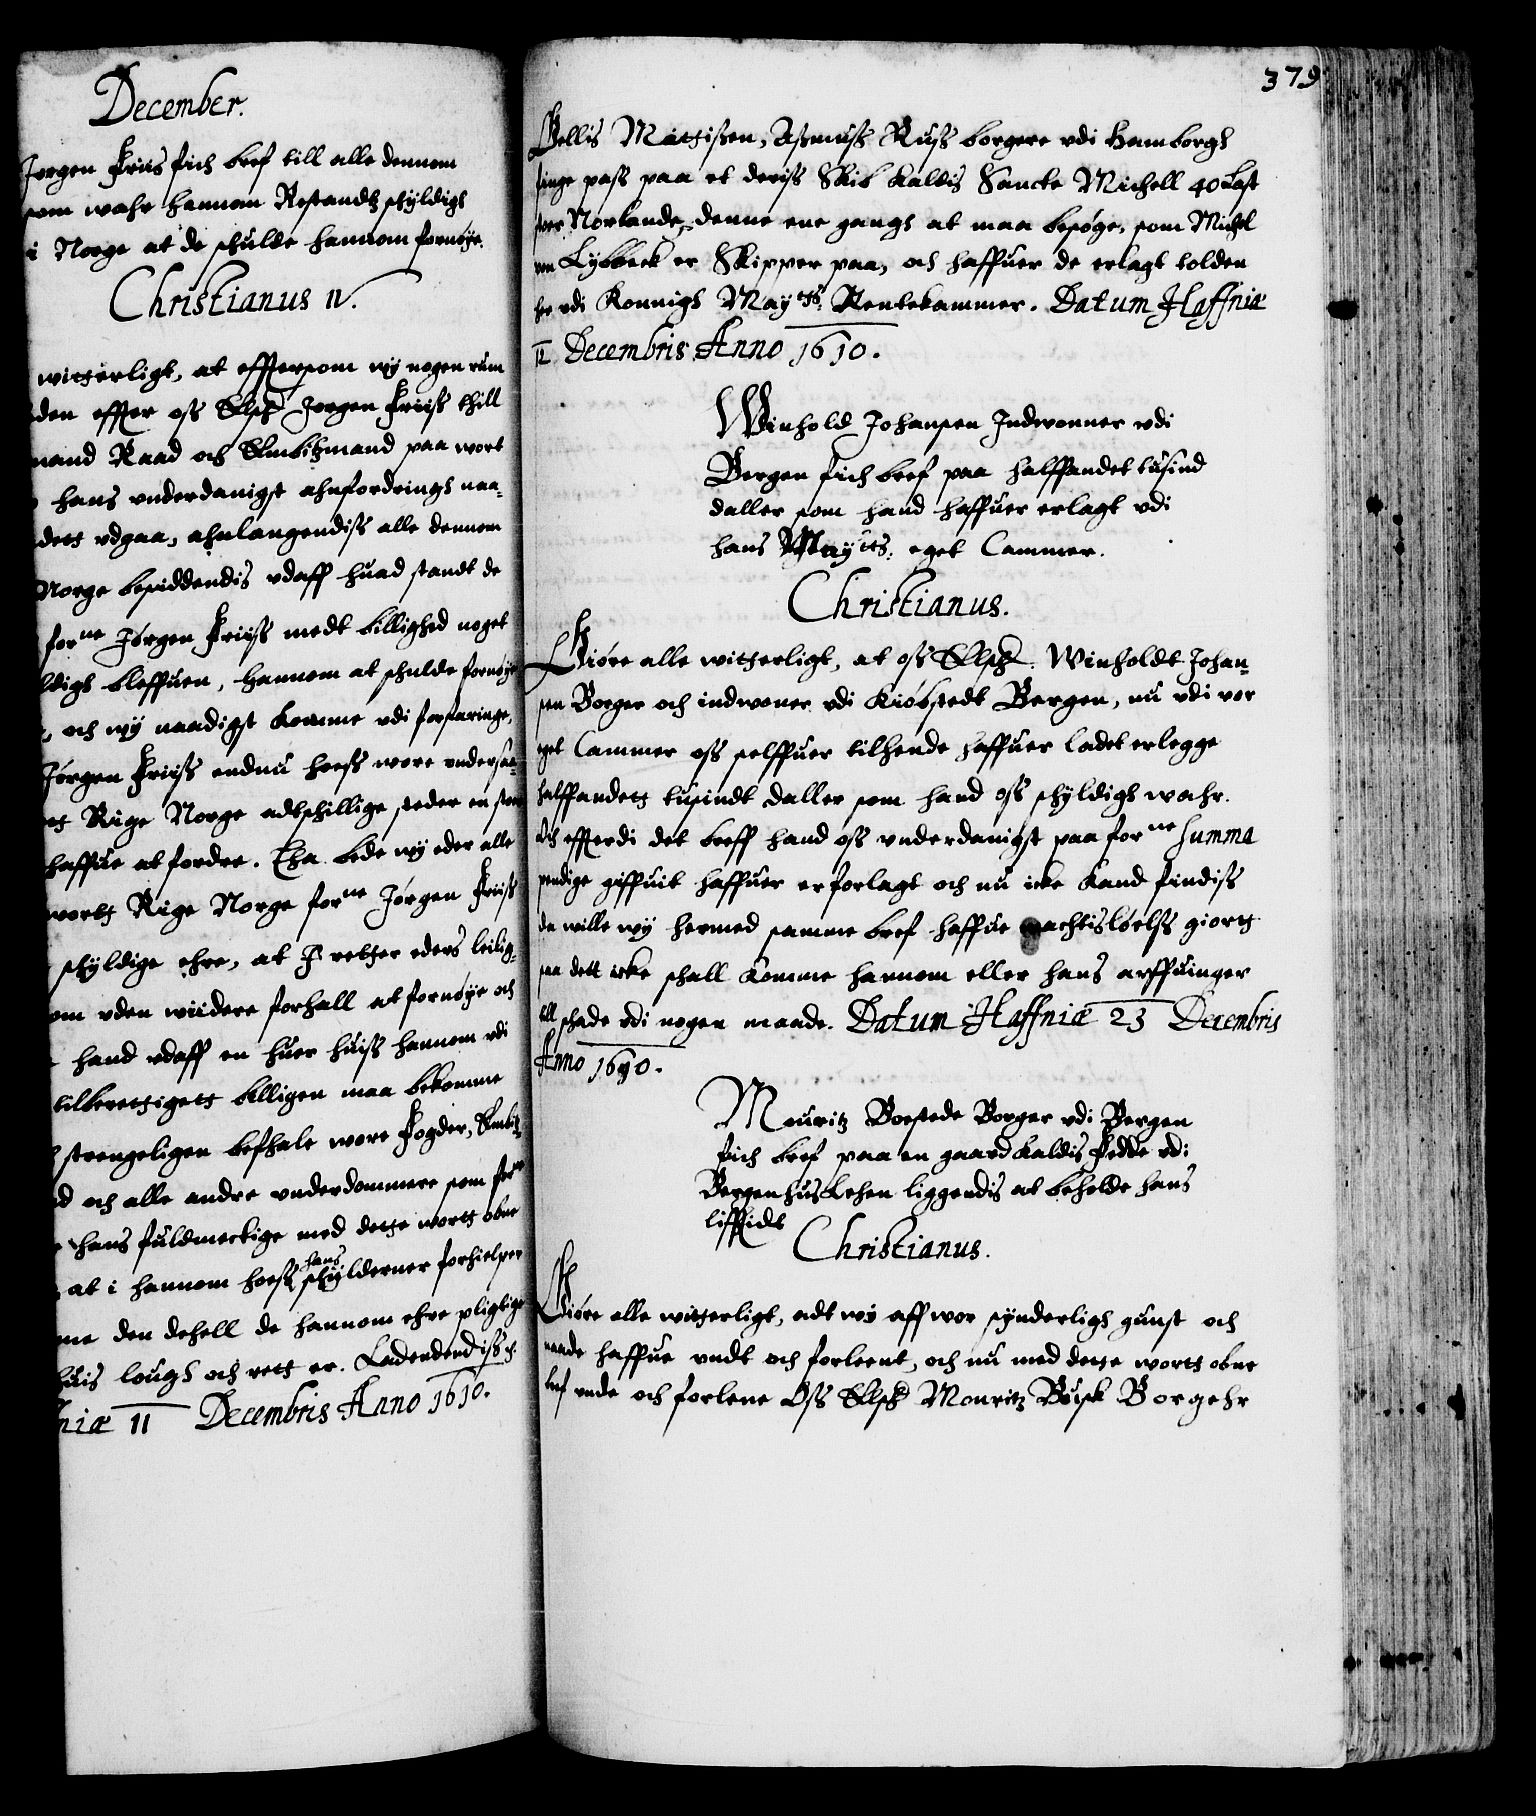 December.
Jorgen Friis fich bref till alle dennom
som wahr hannom Restandtz schyldigh
i Norge at de schulde hannom fornøye.
Christianus IV.
witterligt, at effttersom wy nogen rum
den effter oss Elsch Jorgen Friiss thill
mand Raad och Embitzmand paa wort
hans vnderdanigst ahnfordringh naa-
dets vdgaa, ahnlangendiss alle dennom
Norge besiddendis vdaff huad standt de
forne Jørgen Friiss medt billighed noget
ldigh bleffuen, hannom at schulde fornøye
, och wy naadigst komme vdi forfaringe,
Jørgen Friiss endnu hoess wore vndersaa-
ts Rige Norge adtschillige steder en stoer
haffue at fordre. Tha bede wy eder alle
worts Rige Norge forne Jørgen Friiss
schyldige ehre, at I retther eders leilig-
om vden wiidere forhall at fornøye och
hand vdaff en huer huiss hannom vdi
tilberettigets billigen maa bekomme
strengeligen befhale wore Fogder, Embitz
d och alle andre vnderdommere som forne
hans fuldmectige med dette worts obne
at i hannom hoess hans schylderner forhielper
me den dehell de hannom ehre pligtige
huis lough och rett er. Ladendendiss ch.
niæ 11 Decembris Anno 1610.
379
Pellis Mattissen, Assmuss Russ borgere vdi Hamborgh
finge pass paa et deriss Skib kaldis Sancte Michell 40 Last
Norlande, denne ene gangh at maa besøge, som Michel
von Lybbeck er Skipper paa, och haffuer de erlagt tolden
her vdi Konnigh Maytts: Rentekammer. Datum Haffniæ
12 Decembris Anno 1610.
Winhold Johansen Indwonner vdi
Bergen fich bref paa halffandet tusind
daller som hand haffuer erlagt vdi
hans Maytts: eget Cammer.
Christianus.
Giøre alle witterligt, at oss Elsch. Winholdt Johan-
sen Borger och indwoner vdi Kiøbstedt Bergen, nu vdi vor
eget Cammer oss selffuer tilhende haffuer ladet erlegge
halffandets tusindt daller som hand oss schyldigh wahr.
Och effterdi det breff hand oss vnderdanigst paa forne Summa
pendige giffuit haffuer er forlagt och nu icke kand findiss
da wille wy hermed samme bref haffue machtisløelss giorts
saa dett icke schall komme hannom eller hans arffuinger
till schade vdi nogen maade. Datum Haffniæ 23 Decembris
Anno 1610.
Mouritz Boestede Borger vdi Bergen
fich bref paa en gaard kaldis Fedde vdi
Bergenhus Lehen liggendis at beholde hans
liffstidt
Christianus.
Giøre alle witterligt, adt wy aff wor synderligh gunst och
naade haffue vndt och forleent, och nu med dette worts obne
bref vnde och forlene Oss Elsch Mouritz Busk Borgehr